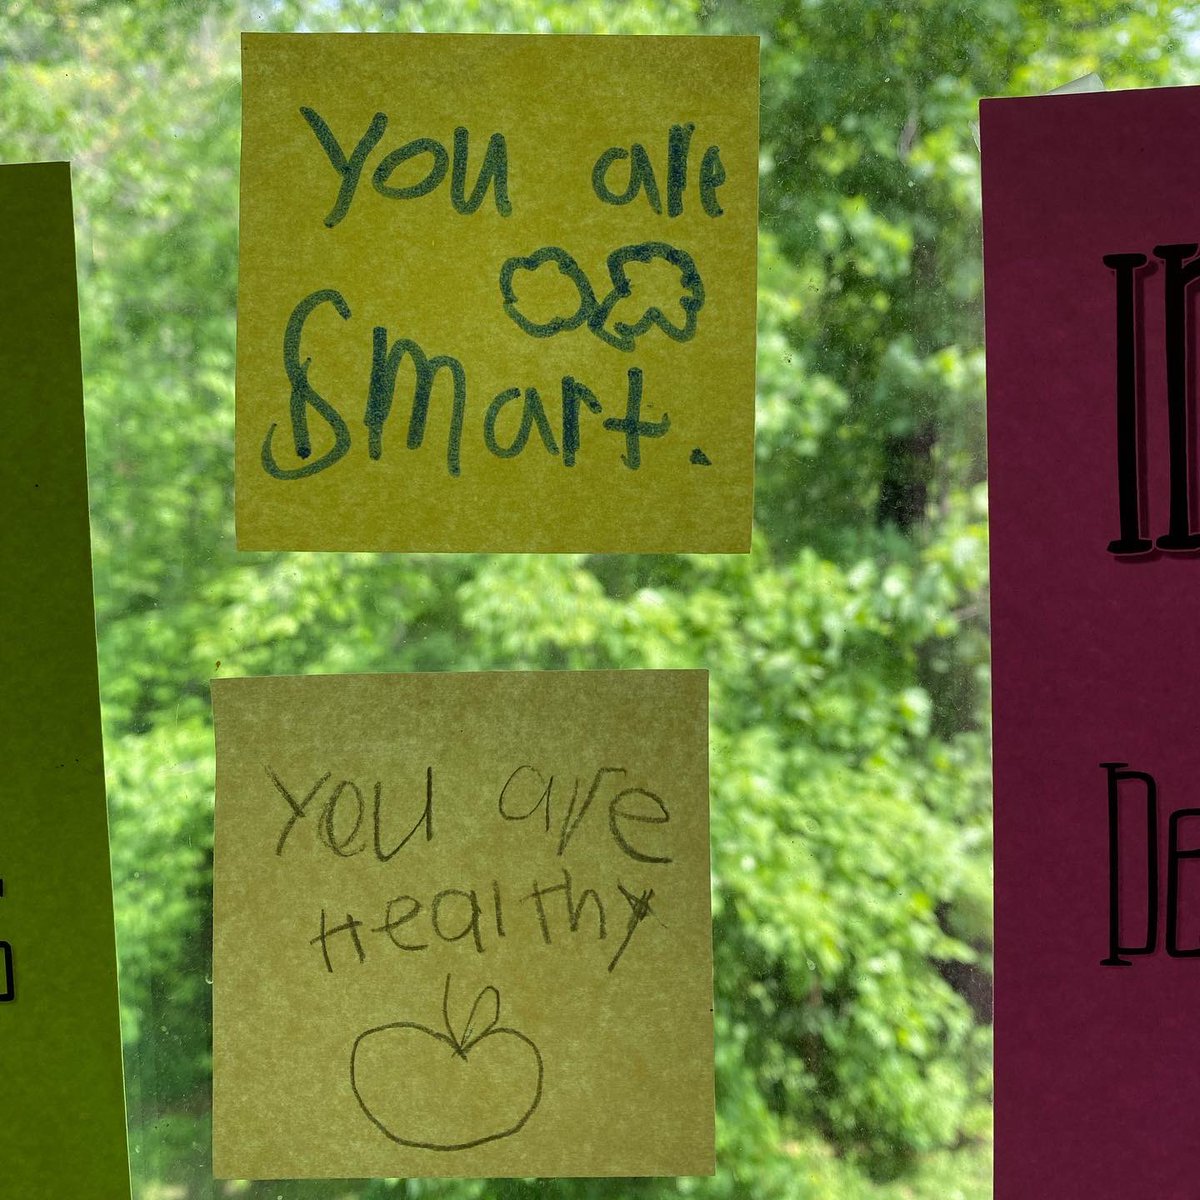 You are
Smart.
You are
Healthy